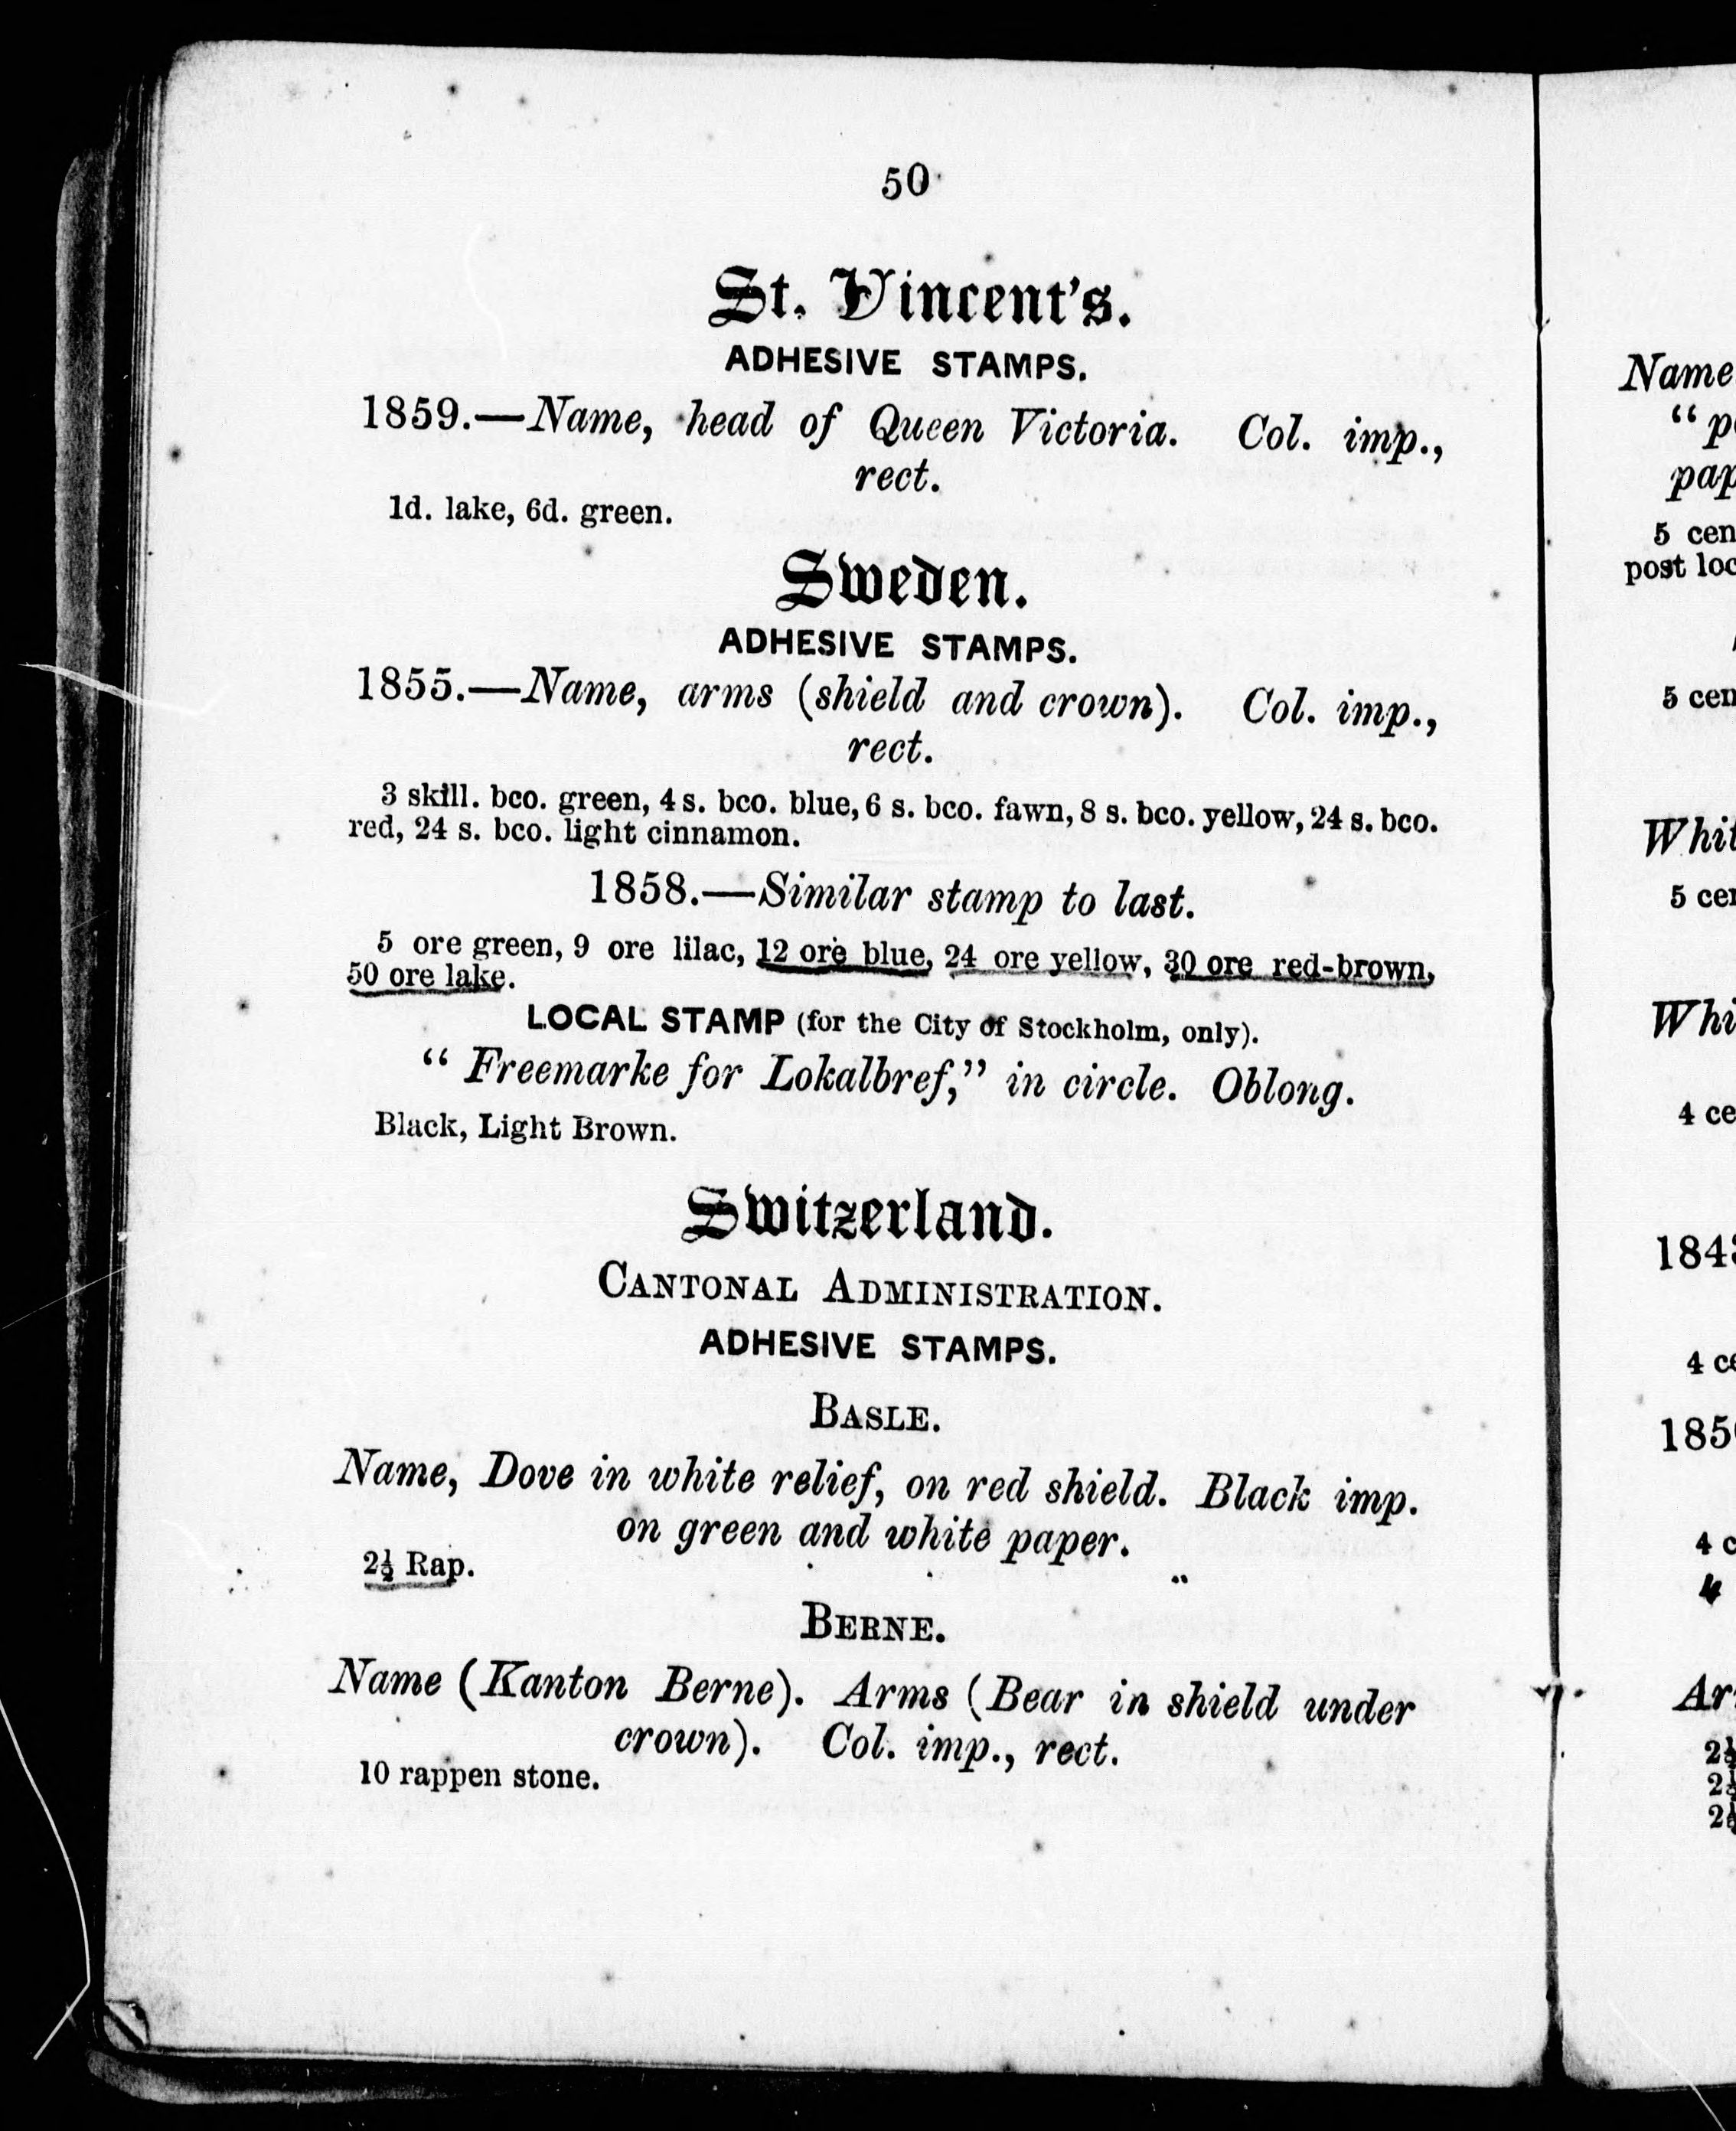 50
St. Vincent's.
ADHESIVE STAMPS.
1859.—Name, head of Queen Victoria. Col. imp.,
rect.
1d. lake, 6d. green.
Sweden.
ADHESIVE STAMPS.
1855.—Name, arms (shield and crown). Col. imp.,
rect.
3 skill. bco. green, 4 s. bco. blue, 6 s. bco. fawn, 8 s. bco. yellow, 24 s. bco.
red, 24 s. bco. light cinnamon.
1858.—Similar stamp to last.
5 ore green, 9 ore lilac, 12 ore blue, 24 ore yellow, 30 ore red-brown,
50 ore lake.
LOCAL STAMP (for the City of Stockholm, only).
“ Freemarke for Lokalbref,” in circle. Oblong.
Black, Light Brown.
Switzerland.
CANTONAL ADMINISTRATION.
ADHESIVE STAMPS.
BASLE.
Name, Dove in white relief, on red shield. Black imp.
on green and white paper.
2½ Rap.
BERNE.
Name (Kanton Berne). Arms (Bear in shield under
crown). Col. imp., rect.
10 rappen stone.
Name
5
post
5
5
4
4
4